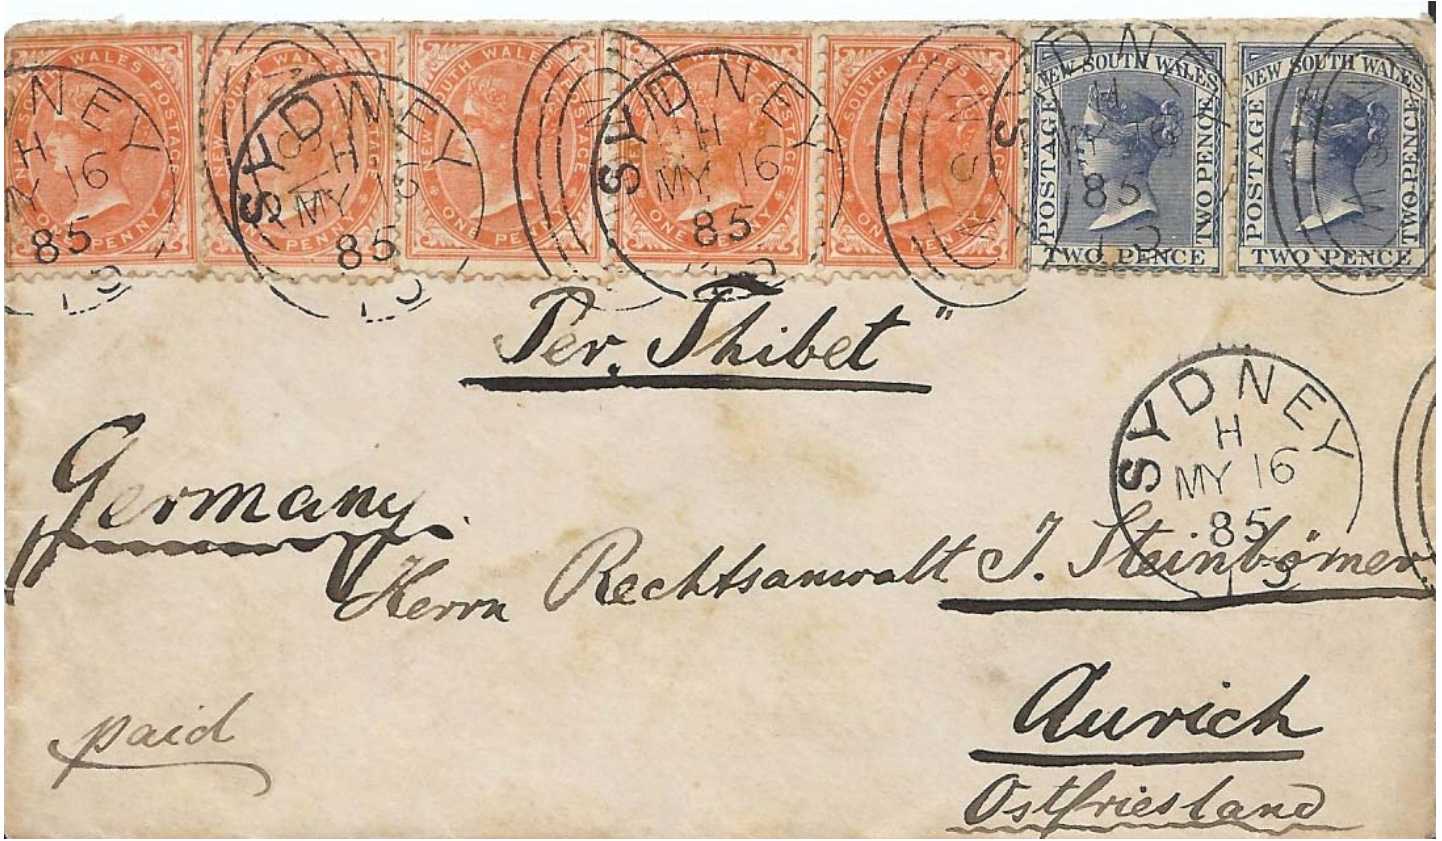 NEW SOUTH WALES POSTAGE
ONE PENNY
NEW SOUTH WALES POSTAGE
ONE PENNY
NEW SOUTH WALES POSTAGE
ONE PENNY
NEW SOUTH WALES POSTAGE
ONE PENNY
NEW SOUTH WALES POSTAGE
ONE PENNY
NEW SOUTH WALES
POSTAGE
TWO PENCE
TWO PENCE
NEW SOUTH WALES
POSTAGE
TWO PENCE
TWO PENCE
SYDNEY
H
MY 16
85
SYDNEY
H
MY 16
85
SYDNEY
H
MY 16
85
SYDNEY
H
MY 16
85
"Per, Thibet"
SYDNEY
H
MY 16
85
Germany
Herrn Rechtsanwalt J. Steinbömer
Aurich
paid
Ostfriesland